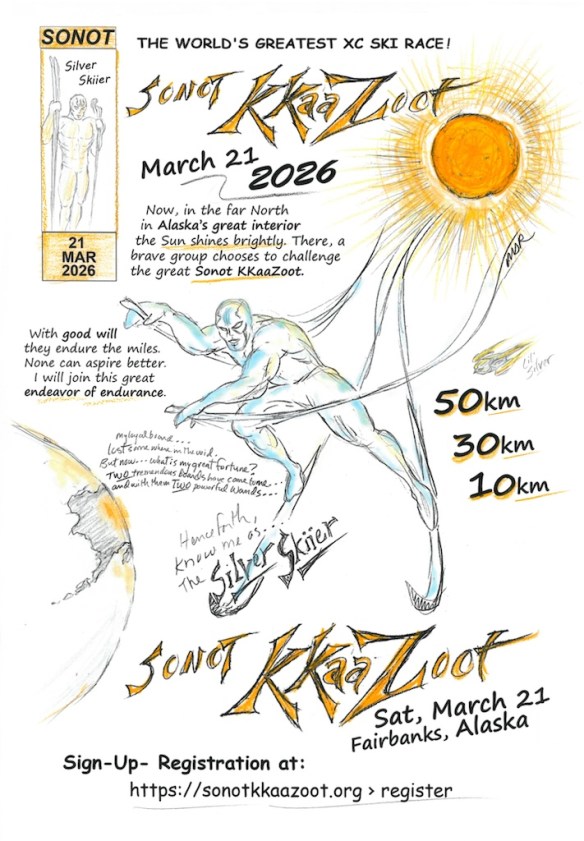 SONOT
Silver
Skiier
21
MAR
2026
THE WORLD'S GREATEST XC SKI RACE!
SONOT KKaaZoot
March 21
2026
Now, in the far North
in Alaska's great interior
the Sun shines brightly. There, a
brave group chooses to challenge
the great Sonot KKaaZoot.
MSR
With good will
they endure the miles.
None can aspire better.
I will join this great
endeavor of endurance.
Lil'
Silver
50km
30km
10km
my loyal board...
Lost some where in the void.
But now... what is my great fortune?
Two tremendous boards have come to me
and with them Two powerful wands...
Henceforth,
Know me as...
The Silver Skiier
SONOT KKaaZoot
Sat, March 21
Fairbanks, Alaska
Sign-Up- Registration at:
https://sonotkkaazoot.org › register